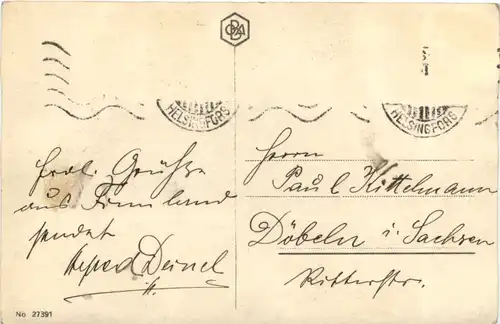 HELSINGFORS
HELSINGFORS
frdl. Grüsse
aus Finnland
sendet
Alfred Deinel
Herrn
Paul Kittelmann
Döbeln i. Sachsen
Ritterstr.
No 27391